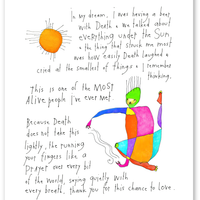 In my dream, I was having a beer
with Death & we talked about
everything under the Sun,
& the thing that struck me most
was how easily Death laughed &
cried at the smallest of things & I remember
thinking,
This is one of the MOST
ALIVE people I've ever met.
Because Death
does not take this
lightly, the running
your fingers like a
prayer over every bit
of the world, saying quietly with
every breath, thank you for this chance to love.